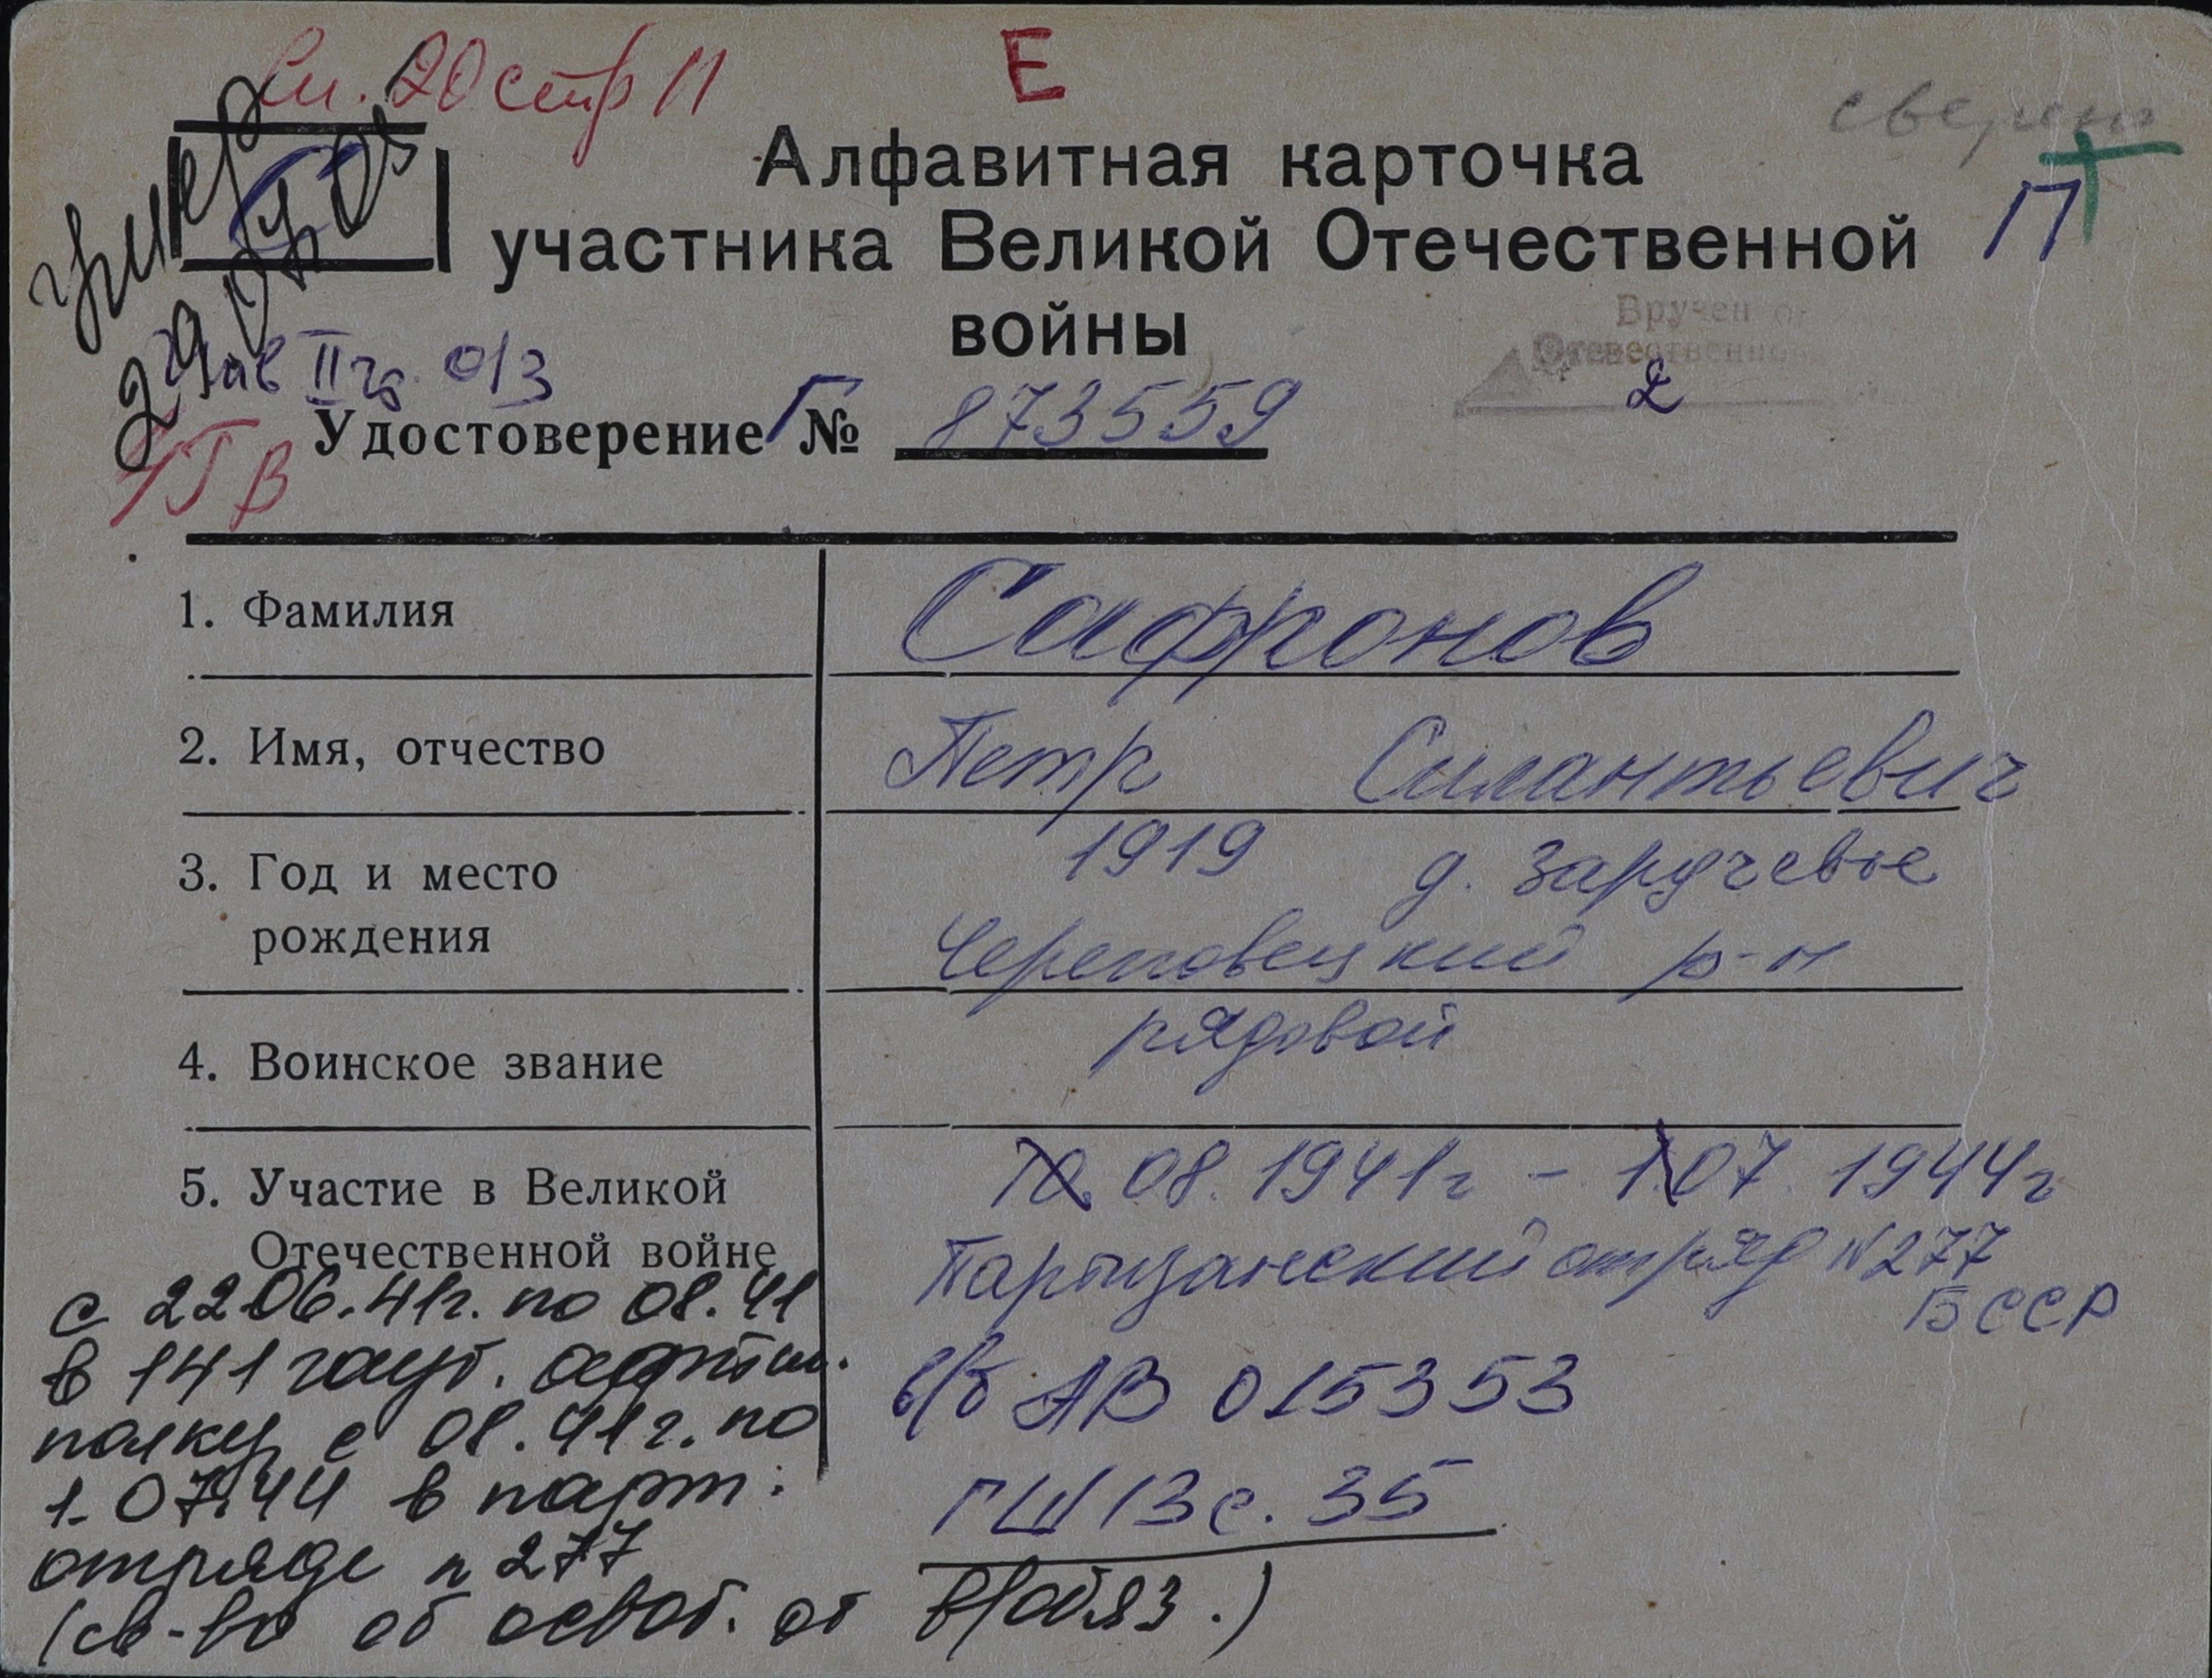 См. 20 стр 11
Е
сверено
Алфавитная карточка
П
участника Великой Отечественной
войны
умер
29.04.05
Вручен
Отечественной
2
инв II гр. о/з
Удостоверение Г № 873559
УГВ
1. Фамилия Сафронов
2. Имя, отчество Петр Силантьевич
3. Год и место 1919 д. Заручевье
рождения Череповецкий р-н
4. Воинское звание рядовой
5. Участие в Великой 08.1941г – 1.07.1944г
Отечественной войне Партизанский отряд N277
БССР
с 22.06.41г. по 08.41
в 141 гауб. артил.
полку с 08.41г. по
1.07.44 в парт.
отряде N 277
(св-во об освоб. от в/обяз.)
в/б АВ 015353
ГШ 13 с. 35